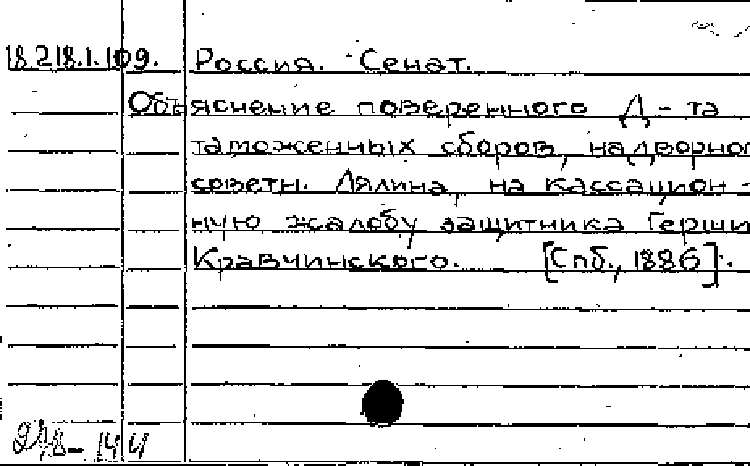 18.218.1.109. Россия. Сенат.
Объяснение поверенного Д-та
таможенных сборов, надворног
советн. Лялина, на кассацион-
ную жалобу защитника Герши
Кравчинского. [Спб., 1886].